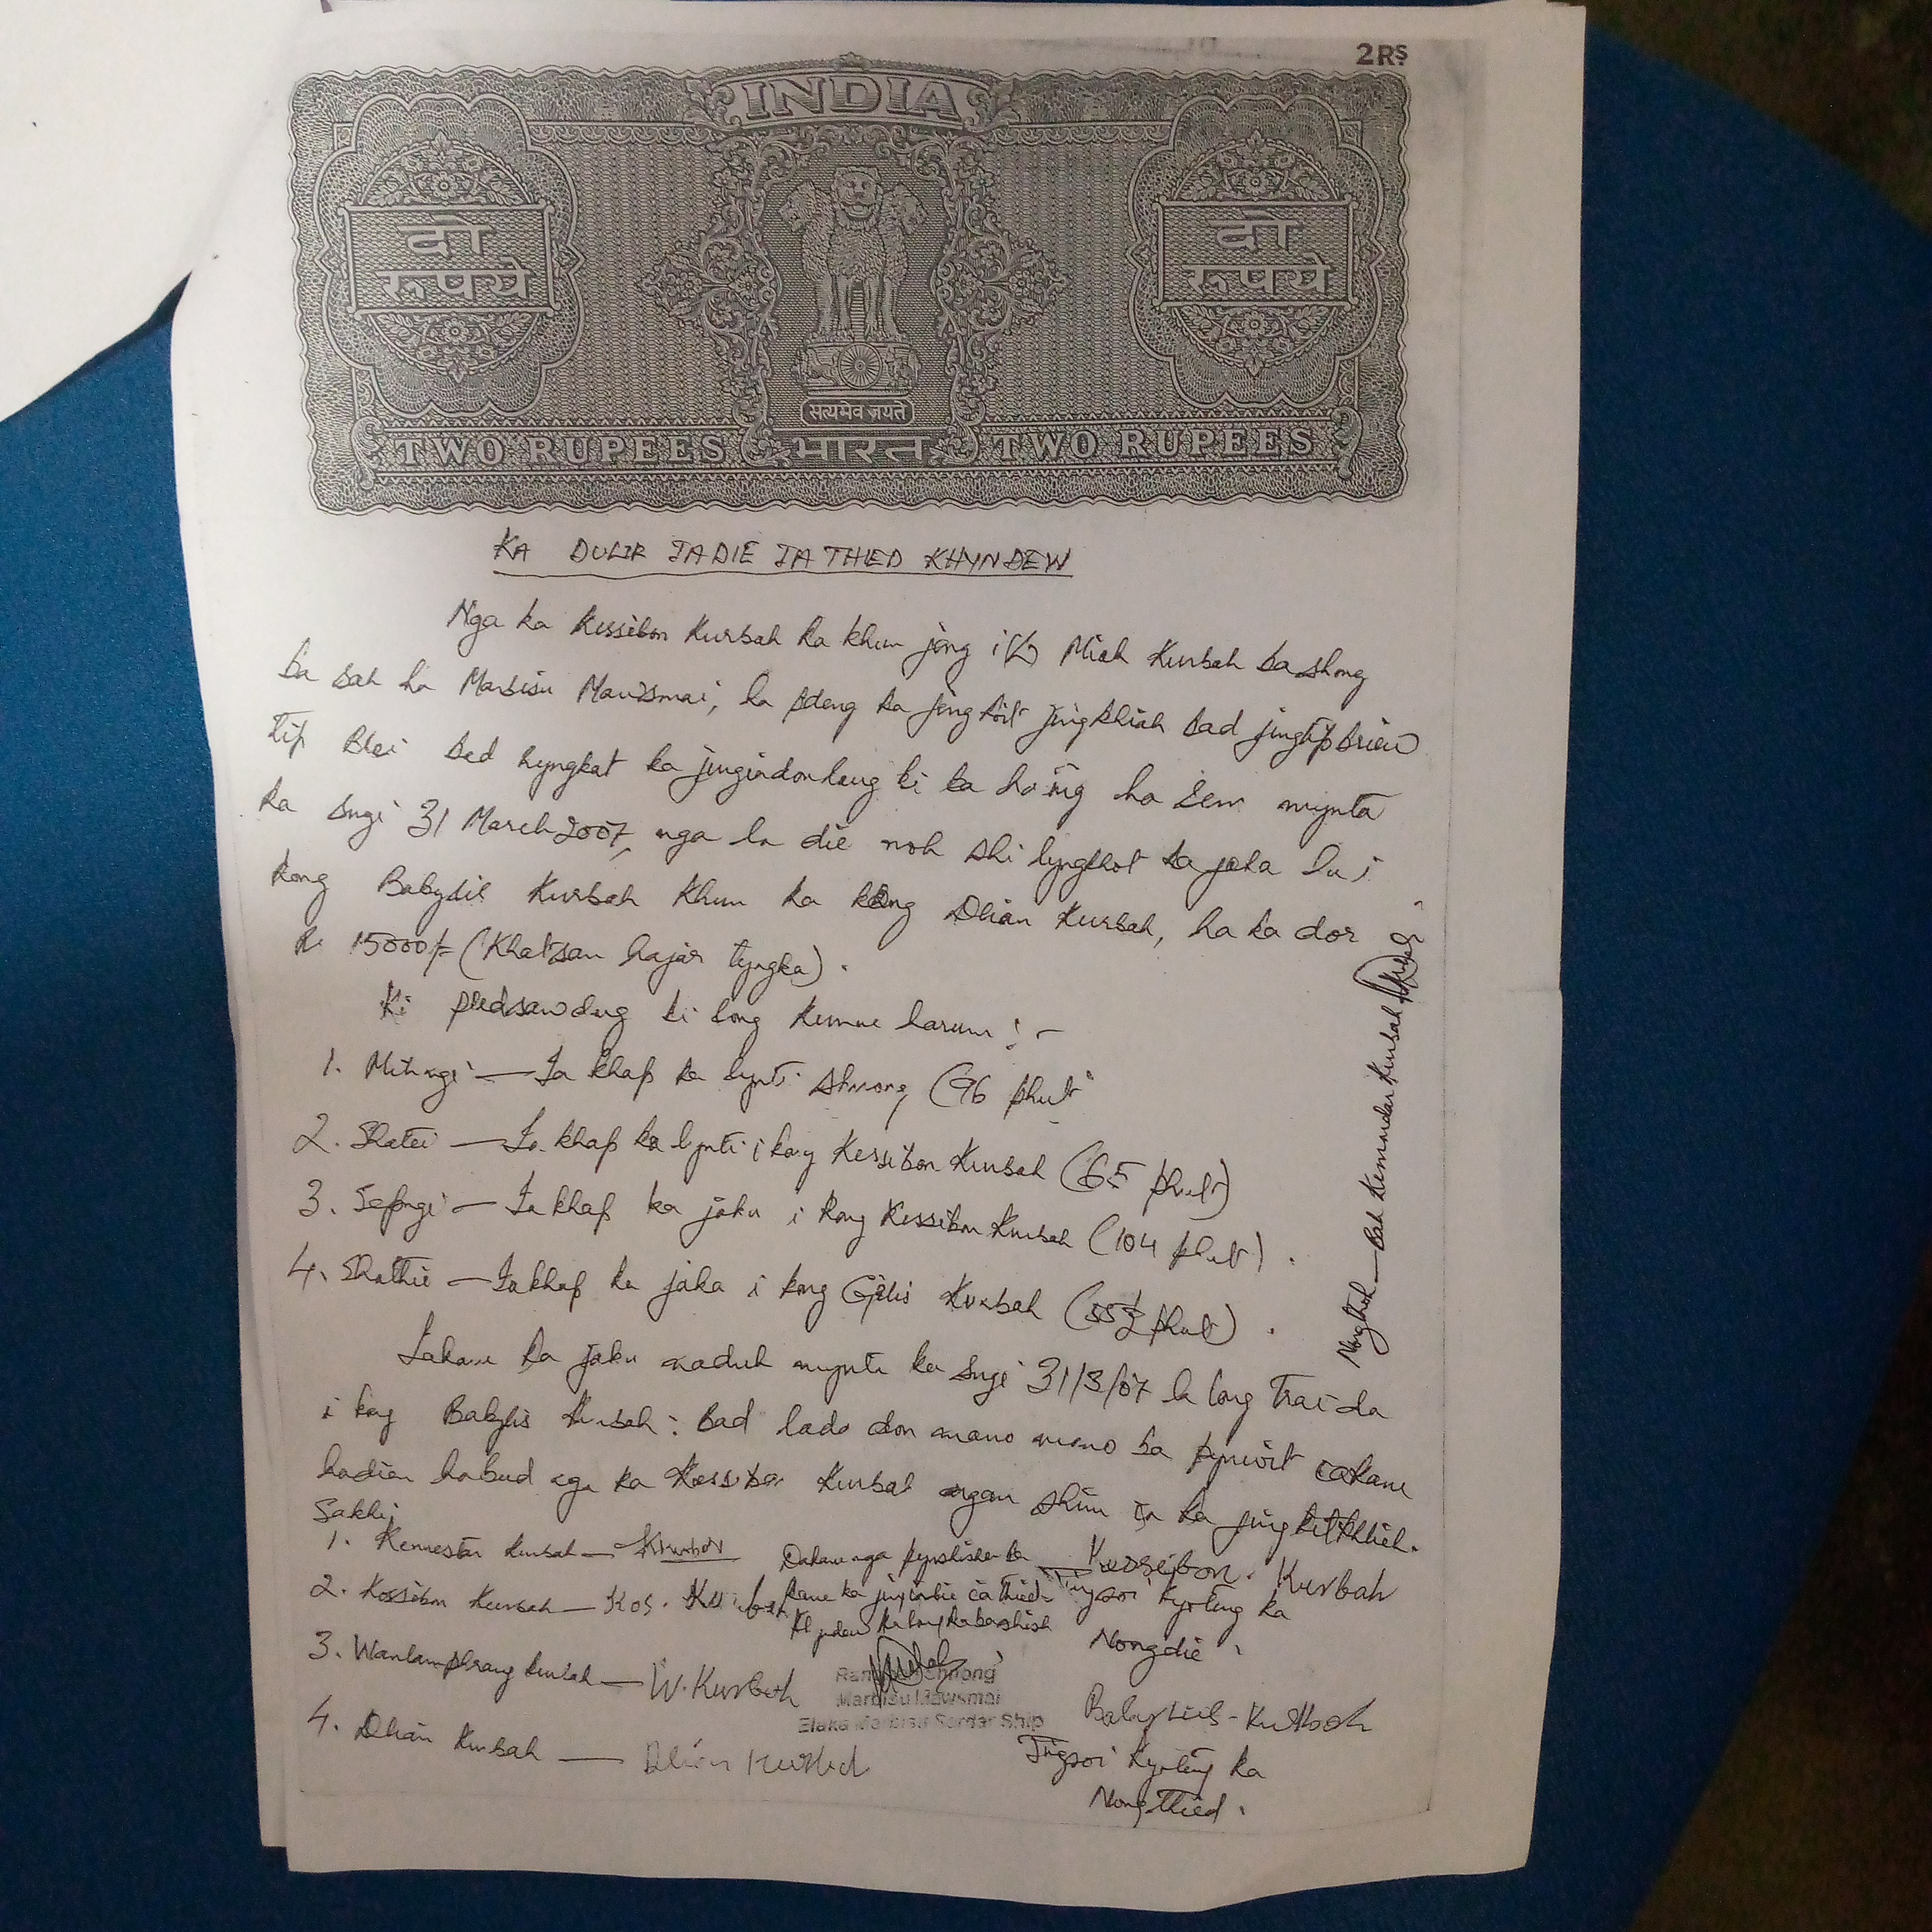 2RS
INDIA
दो
रूपये
दो
रूपये
सत्यमेव जयते
TWO RUPEES भारत TWO RUPEES
KA DULIR IADIE IATHIED KHYNDEW
Nga ka Kessibon Kurbah ka khun jong i(L) Miah Kurbah ba shong
ba sah ha Marbisu Mawsmai, ha pdeng ka jingkoit jingkhiah bad jingtip briew
tip Blei bad hyngkat ka jingiadonlang ki ba ha ïing ha sem mynta
ka sngi 31 March 2007, nga la die noh shi lyngkhot ka jaka ha i
kong Babylis Kurbah khun ka kong Dlian Kurbah, ha ka dor
Rs 15000/= (Khatsan hajar tyngka).
Ki pudsawdong ki long kumne harum :-
1. Mihngi — Ia khap ka lynti shnong (96 phut
2. Shatei — Ia khap ka lynti i kong Kessibon Kurbah (65 phut)
3. Sepngi — Ia khap ka jaka i kong Kessibon Kurbah (104 phut).
4. Shathie — Ia khap ka jaka i kong Gilis Kurbah (55½ phut).
Iakane ka jaka naduh mynta ka sngi 31/3/07 la long trai da
i kong Babylis Kurbah. Bad lada don mano mano ba pynwit iakane
hadien habud nga ka Kessibon Kurbah ngan shim ia ka jingkitkhlieh.
Sakhi
1. Kennestar Kurbah — Kkurbah
2. Kossibon Kurbah — Kos. Kurbah
3. Wanlamphrang Kurbah — W. Kurbah
4. Dlian Kurbah — Dlian Kurbah
Dakane nga pynshisha ba
kane ka jingiadie ia thied
khyndew ka long kaba shisha
Rangbah Shnong
Marbisu Mawsmai
Elaka Marbisu Sordar Ship
Kessibon. Kurbah
Tingsoi kyrteng ka
Nongdie.
Babylis-Kurbah
Tingsoi kyrteng ka
Nongthied.
Nongthoh — Bah Kemindar Kurbah